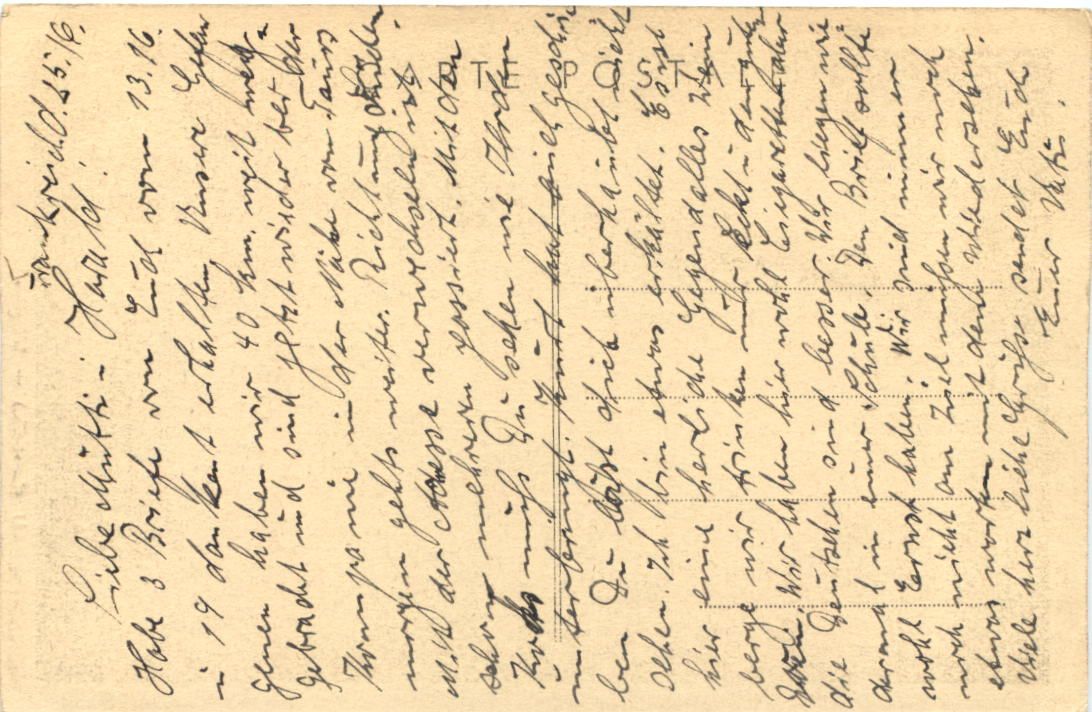 Frankreich d. 25./6.
Liebe Mutti u. Harald!
Habe 3 Briefe von Euch vom 13. 16.
u 19 dankent erhalten, Unsere Gefan
genen haben wir 40 km. weit weg-
gebracht und sind jetzt wieder bei der
Kompanie in der Nähe von Tours
morgen gehts weiter. Richtung
Mit der Adresse verwechseln ist
schon mehreren passiert. Mit den
Koks muss Du sehen wie Ihr den
unterbringt. Kurt hat
ben Du lässt dich überhaubt nicht
sehen. Ich bin etwas erkältet. Es ist
hier eine herliche Gegend alles Wein
berge wir trinken nur Sekt u
Wir haben hier wohl Cigaretten aber
die Deutschen sind besser. Wir liegen wie
in einer Schule. Den Brief sollte
wohl Ernst haben. Wir sind immer
noch nicht am Ziel müssen wir noch
etwas warten mit dem Wiedersehen.
Viele herzliche Grüße sendet Euch
Euer Vati.
CARTE POSTALE